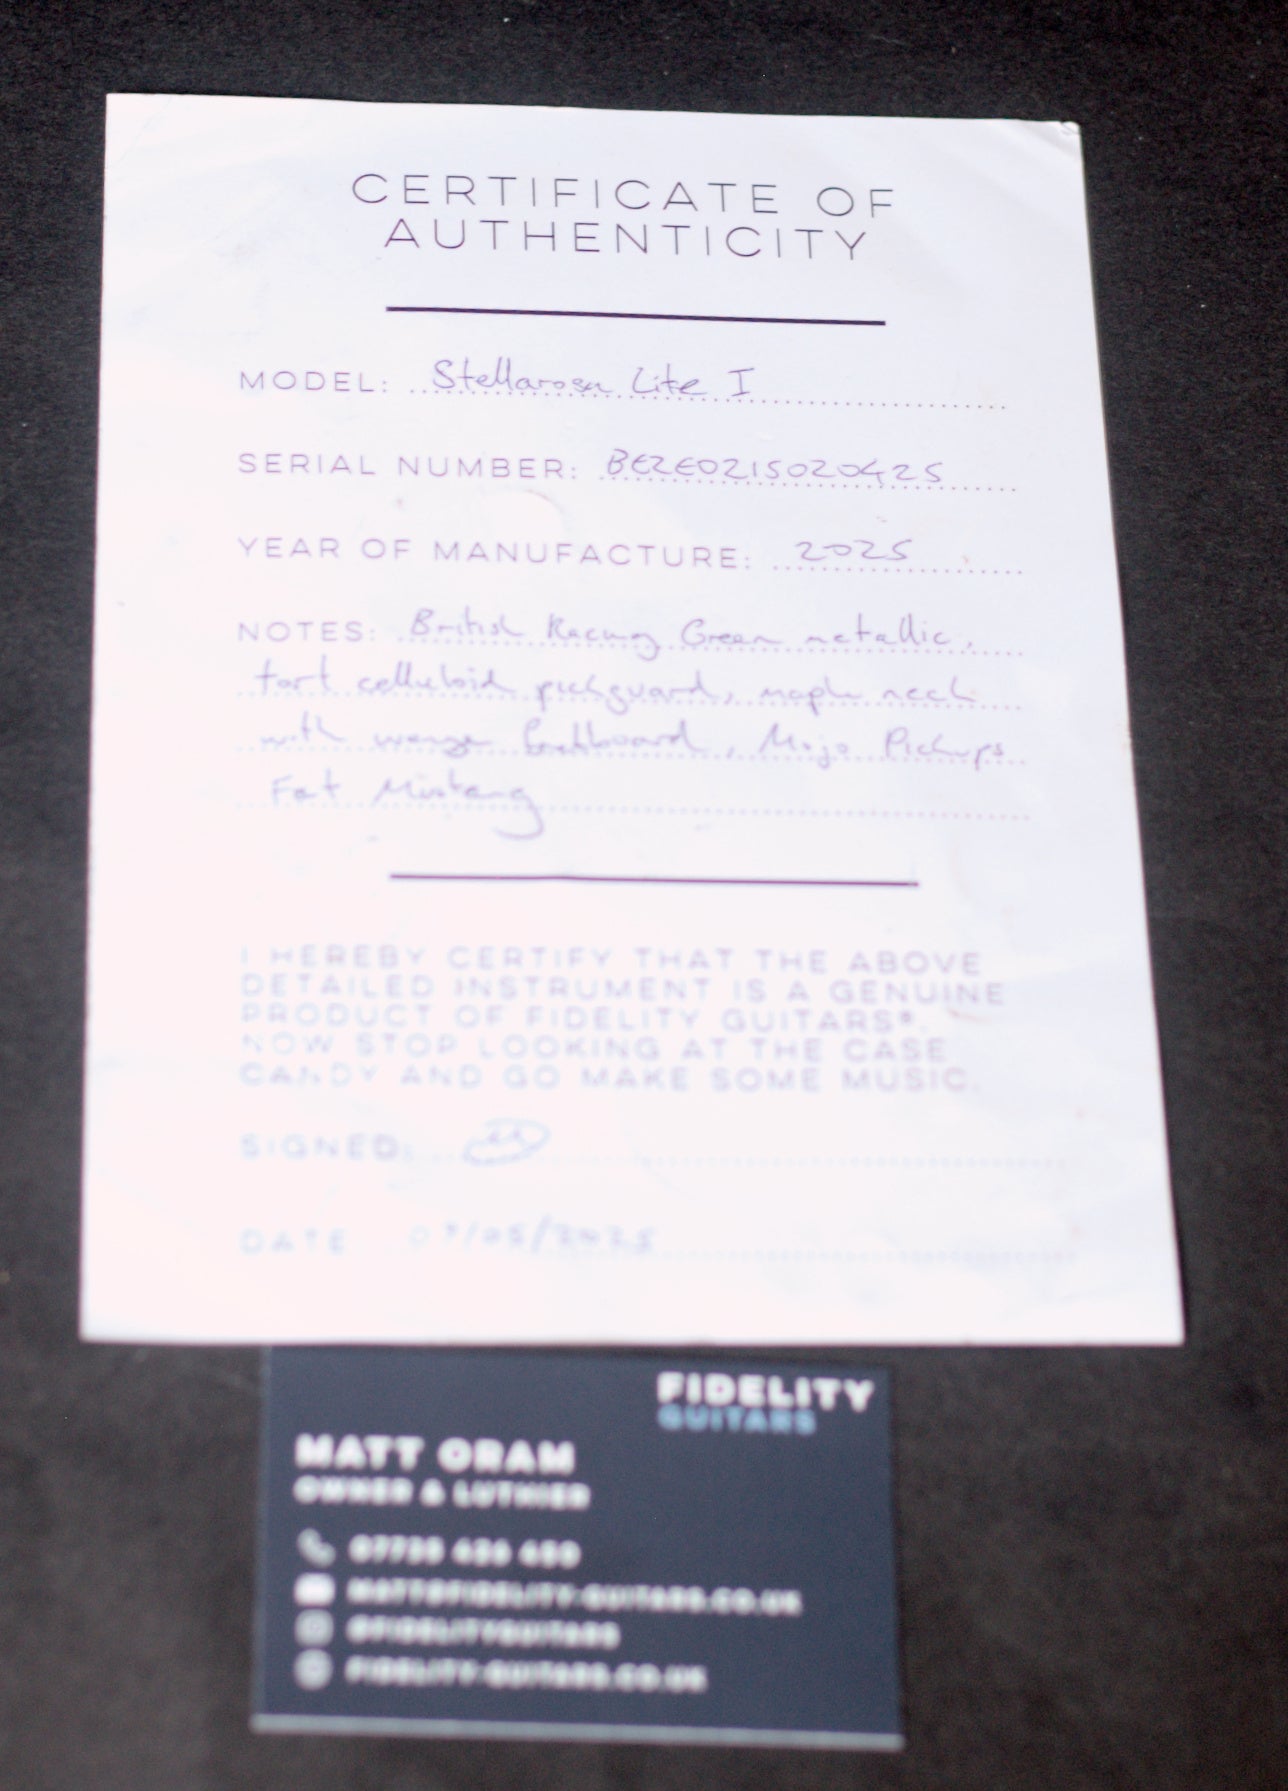 CERTIFICATE OF
AUTHENTICITY
MODEL: Stellarosa Lite I
SERIAL NUMBER: BEZE0215020425
YEAR OF MANUFACTURE: 2025
NOTES: British Racing Green metallic,
tort celluloid pickguard, maple neck
with wenge fretboard, Mojo Pickups
Fat Mustang
I HEREBY CERTIFY THAT THE ABOVE
DETAILED INSTRUMENT IS A GENUINE
PRODUCT OF FIDELITY GUITARS®.
NOW STOP LOOKING AT THE CASE
CANDY AND GO MAKE SOME MUSIC.
SIGNED:
DATE
FIDELITY
GUITARS
MATT ORAM
OWNER & LUTHIER
MATT@FIDELITY-GUITARS.CO.UK
@FIDELITYGUITARS
FIDELITY-GUITARS.CO.UK